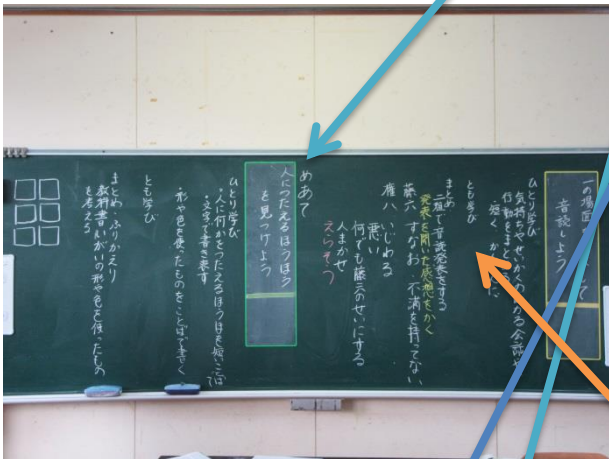 一の場面の
音読しよう
ひとり学び
気持ちやせいかくのわかる会話や
行動をまと
短く、か
とも学び
まとめ
二班で音読発表をする
発表を聞いた感想をかく
藤六 すなお 不満を持ってない
権八 いじわる
悪い
何でも藤六のせいにする
人まかせ
えらそう
めあて
人につたえるほうほう
を見つけよう
ひとり学び
・人に何かをつたえるほうほうを短いことばで
・文字で書き表す
・形や色を使ったものをことばで書く
とも学び
まとめ・ふりかえり
教科書いがいの形や色を使ったもの
を考える